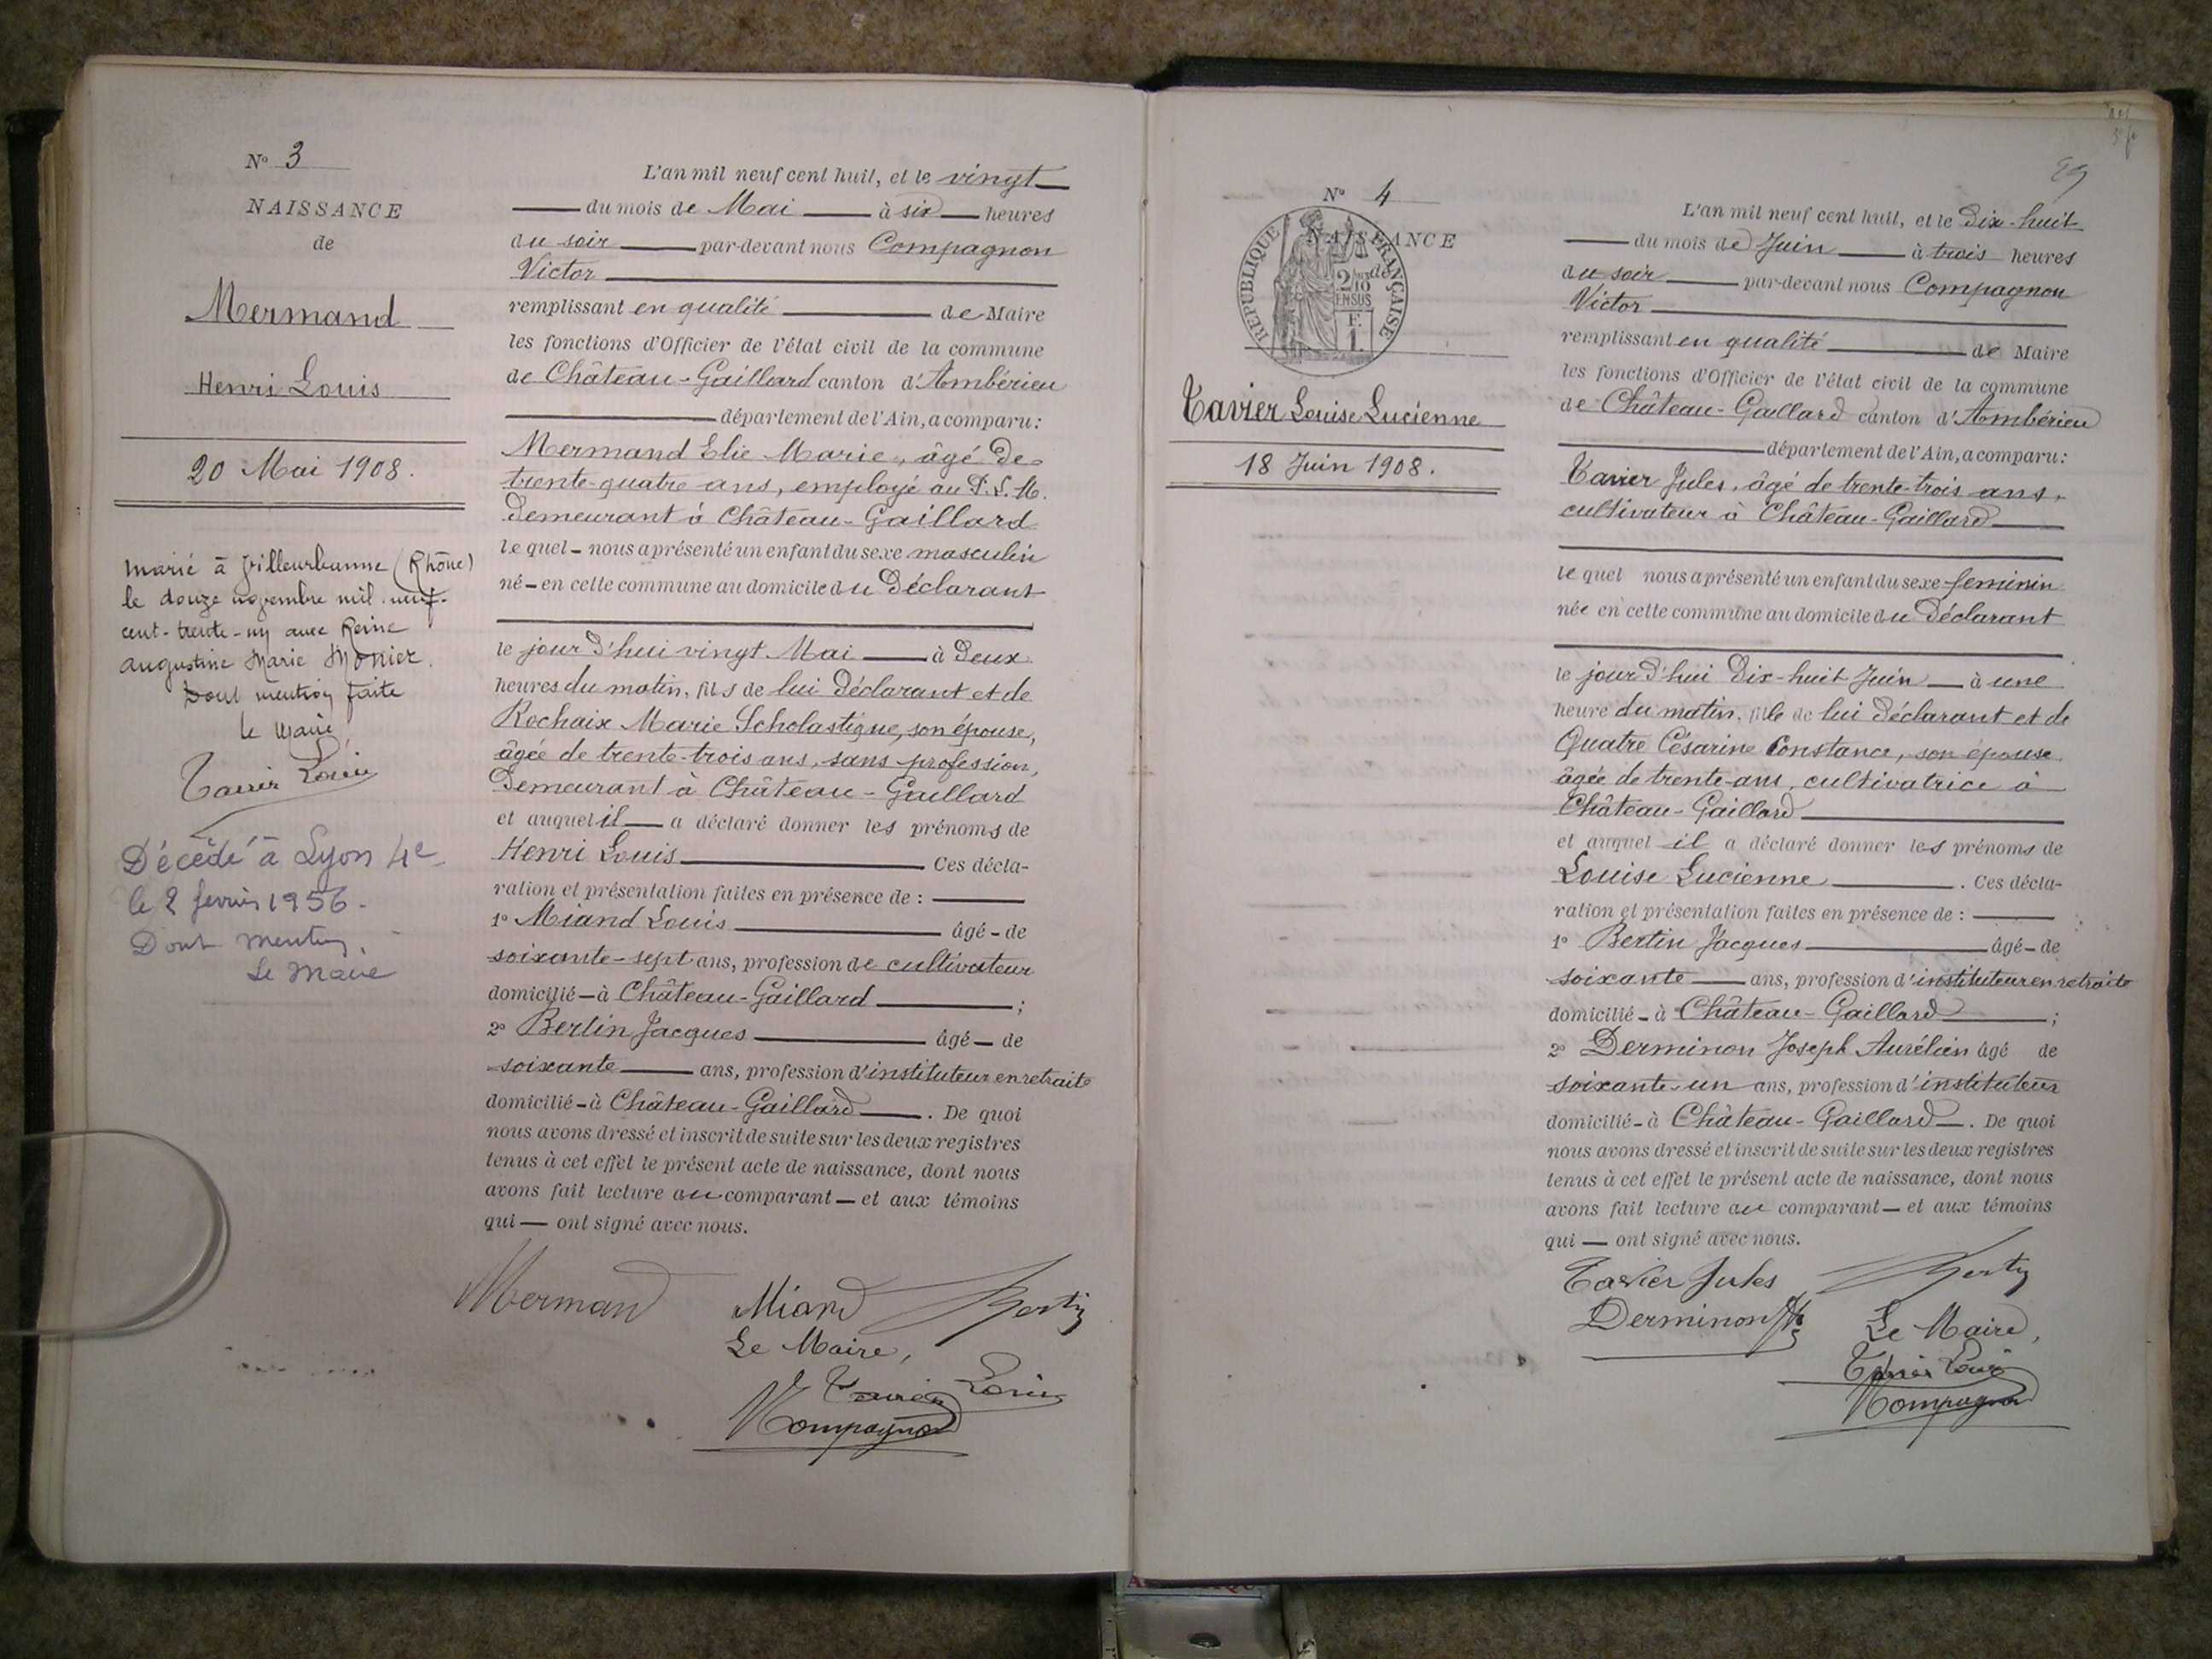 N° 3
NAISSANCE
de
Mermand
Henri Louis
20 Mai 1908.
marié à Villeurbanne (Rhône)
le douze novembre mil-neuf-
cent-trente-un avec Reine
Augustine Marie Monier.
Dont mention faite
le Maire,
Tavier Louis
Décédé à Lyon 4e
le 2 février 1956-
Dont mention,
Le Maire
L'an mil neuf cent huit, et le vingt
du mois de Mai à six heures
du soir par-devant nous Compagnon
Victor
remplissant en qualité de Maire
les fonctions d'Officier de l'état civil de la commune
de Château-Gaillard canton d'Ambérieu
département de l'Ain, a comparu:
Mermand Elie Marie, âgé de
trente-quatre ans, employé au P.L.M.
demeurant à Château-Gaillard
lequel nous a présenté un enfant du sexe masculin
né en cette commune au domicile du Déclarant
le jour d'hui vingt Mai à deux
heures du matin, fils de lui Déclarant et de
Rochaix Marie Scholastique, son épouse,
âgée de trente-trois ans, sans profession,
demeurant à Château-Gaillard
et auquel il a déclaré donner les prénoms de
Henri Louis Ces décla-
ration et présentation faites en présence de :
1° Miand Louis âgé de
soixante-sept ans, profession de cultivateur
domicilié à Château-Gaillard ;
2° Bertin Jacques âgé de
soixante ans, profession d'instituteur en retraite
domicilié à Château-Gaillard . De quoi
nous avons dressé et inscrit de suite sur les deux registres
tenus à cet effet le présent acte de naissance, dont nous
avons fait lecture au comparant et aux témoins
qui ont signé avec nous.
Mermand Miand Bertin
Le Maire,
Tavier Louis
VCompagnon
29
N° 4
NAISSANCE
de
REPUBLIQUE FRANÇAISE
2/10
EN SUS
F.
1.
Tavier Louise Lucienne
18 Juin 1908.
L'an mil neuf cent huit, et le Dix-huit
du mois de Juin à trois heures
du soir par-devant nous Compagnon
Victor
remplissant en qualité de Maire
les fonctions d'Officier de l'état civil de la commune
de Château-Gaillard canton d'Ambérieu
département de l'Ain, a comparu:
Tavier Jules, âgé de trente-trois ans,
cultivateur à Château-Gaillard
lequel nous a présenté un enfant du sexe feminin
née en cette commune au domicile du Déclarant
le jour d'hui Dix-huit Juin à une
heure du matin, fille de lui Déclarant et de
Quatre Césarine Constance, son épouse
âgée de trente-ans, cultivatrice à
Château-Gaillard
et auquel il a déclaré donner les prénoms de
Louise Lucienne . Ces décla-
ration et présentation faites en présence de :
1° Bertin Jacques âgé de
soixante ans, profession d'instituteur en retraite
domicilié à Château-Gaillard ;
2° Derminon Joseph Aurélien âgé de
soixante-un ans, profession d'instituteur
domicilié à Château-Gaillard . De quoi
nous avons dressé et inscrit de suite sur les deux registres
tenus à cet effet le présent acte de naissance, dont nous
avons fait lecture au comparant et aux témoins
qui ont signé avec nous.
Tavier Jules Bertin
Derminon
Le Maire,
Tavier Louis
VCompagnon